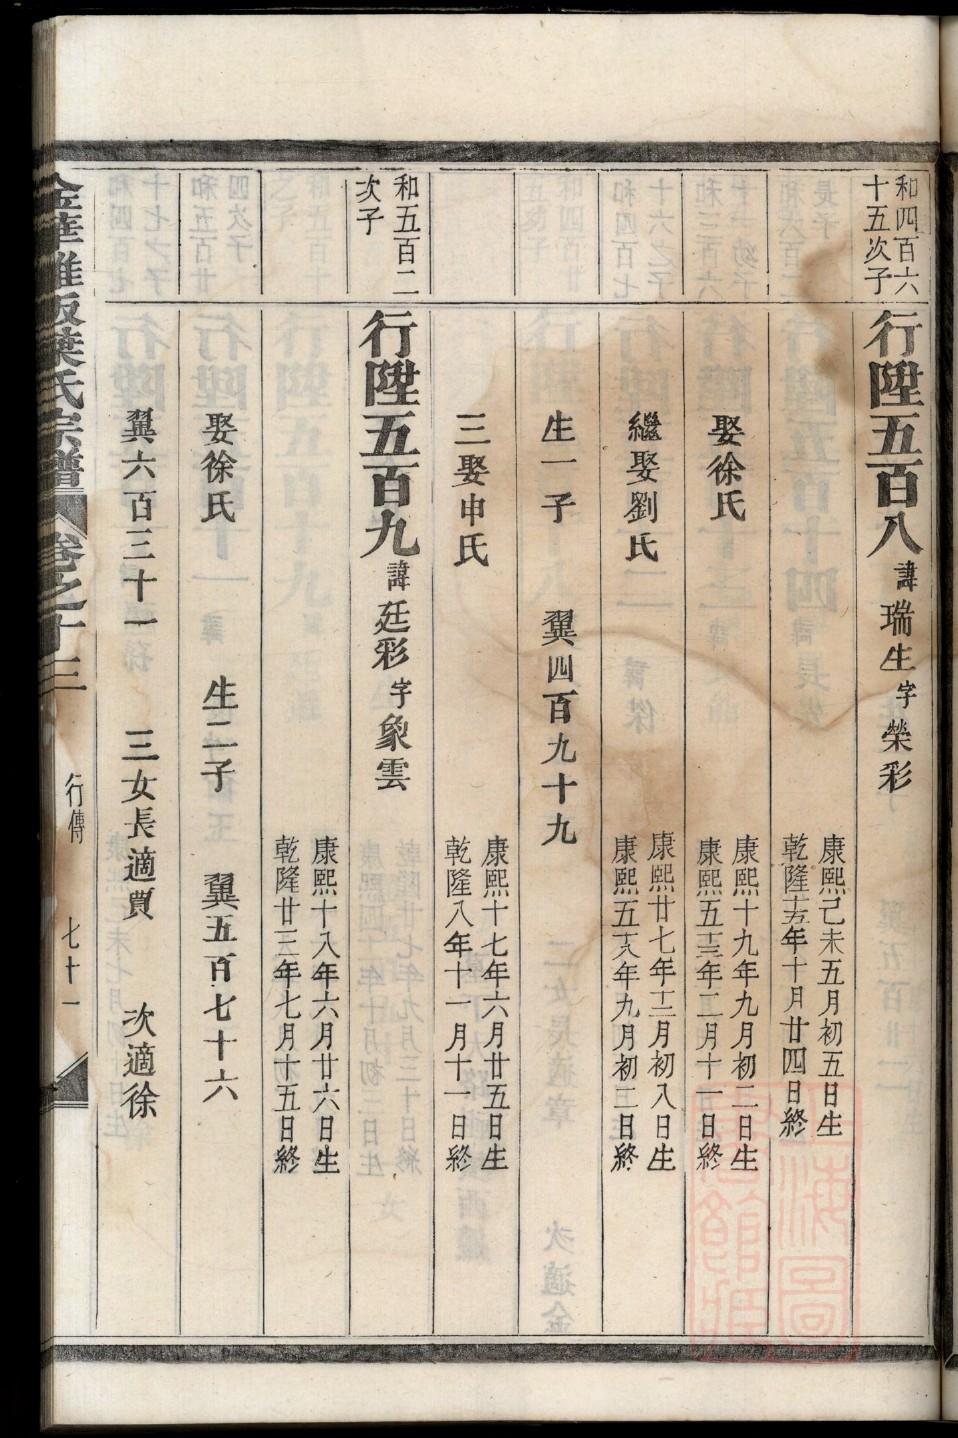 和四百六
十五次子
行陞五百八 諱瑞生字榮彩
康熙己未五月初五日生
乾隆十五年十月廿四日終
娶徐氏
康熙十九年九月初二日生
康熙五十三年二月十一日終
繼娶劉氏
康熙廿七年十二月初八日生
康熙五十八年九月初二日終
生一子 翼四百九十九
三娶申氏
康熙十七年六月廿五日生
乾隆八年十一月十一日終
和五百二
次子
行陞五百九 諱廷彩字象雲
康熙十八年六月廿六日生
乾隆廿三年七月十五日終
娶徐氏 生二子 翼五百七十六
翼六百三十一 三女長適賈 次適徐
金華雅畈葉氏宗譜 卷之十三 行傳 七十一